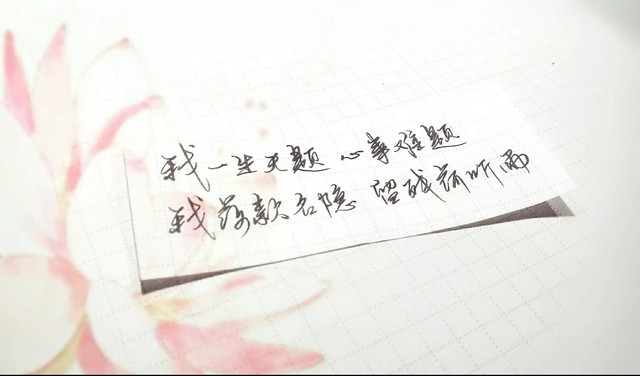 我一生无题 心事难题
我落款名隐 留残荷听雨